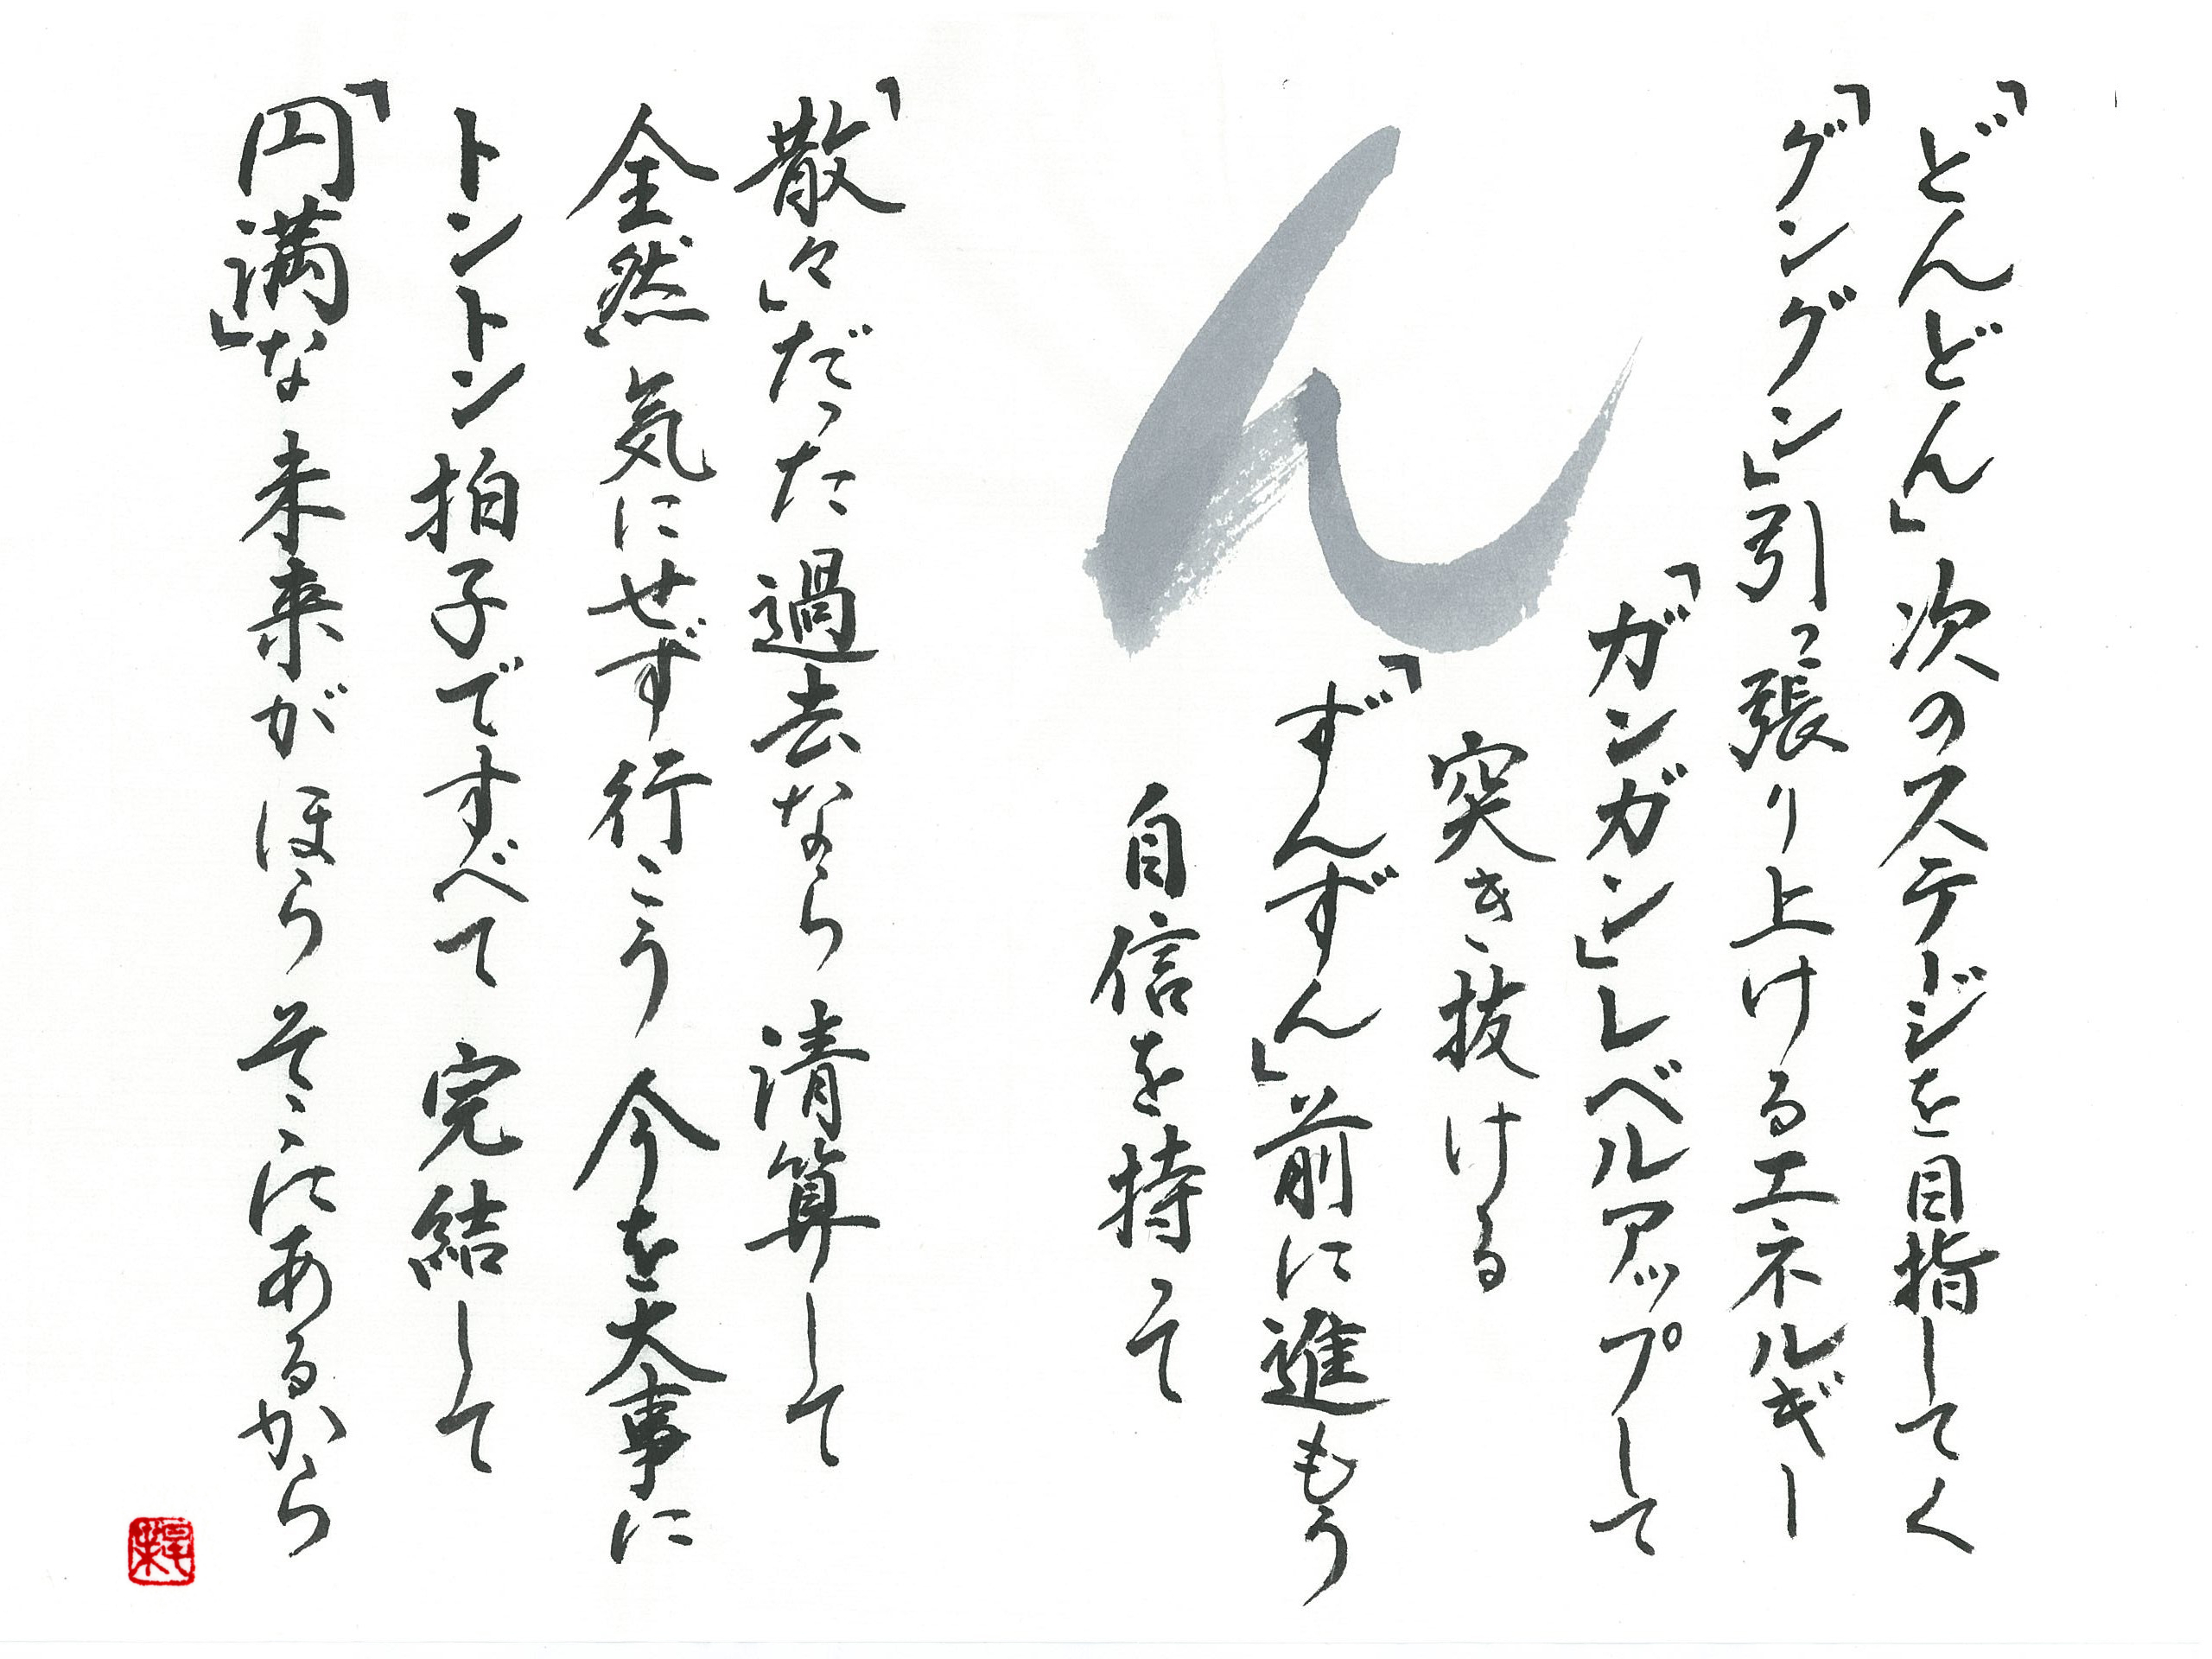 「どんどん」次のステージを目指してく
「グングン」引っ張り上げるエネルギー
「ガンガン」レベルアップして
突き抜ける
「ずんずん」前に進もう
自信を持って
ん
「散々」だった過去なら 清算して
全然 気にせず行こう 今を大事に
トントン拍子ですべて 完結して
「円満」な未来がほらそこにあるから